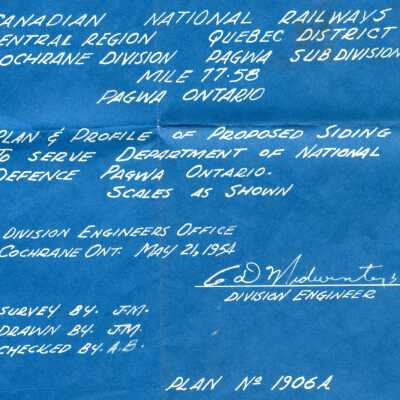 CANADIAN NATIONAL RAILWAYS
CENTRAL REGION QUEBEC DISTRICT
COCHRANE DIVISION PAGWA SUBDIVISION
MILE 77.58
PAGWA ONTARIO
PLAN & PROFILE OF PROPOSED SIDING
TO SERVE DEPARTMENT OF NATIONAL
DEFENCE PAGWA ONTARIO.
SCALES AS SHOWN
DIVISION ENGINEERS OFFICE
COCHRANE ONT. MAY 21, 1954
DIVISION ENGINEER
SURVEY BY. J.M.
DRAWN BY. J.M.
CHECKED BY. A.B.
PLAN Nº 1906A